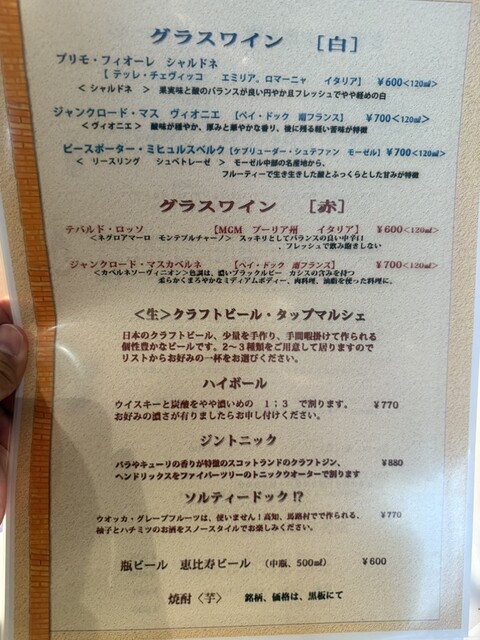 グラスワイン ［白］
プリモ・フィオーレ シャルドネ
【 テッレ・チェヴィッコ エミリア、ロマーニャ イタリア】 ￥600<120㎖>
＜ シャルドネ ＞ 果実味と酸のバランスが良い円やか且フレッシュでやや軽めの白
ジャンクロード・マス ヴィオニエ 【ペイ・ドック 南フランス】 ￥700<120㎖>
＜ヴィオニエ＞ 酸味が穏やか、厚みと華やかな香り、後に残る軽い苦味が特徴
ピースポーター・ミヒュルスベルク【ケヅリューダー・シュテファン モーゼル】￥700<120㎖>
＜ リースリング シュペトレーゼ ＞ モーゼル中部の名産地から、
フルーティーで生き生きした酸とふっくらとした甘みが特徴
グラスワイン ［赤］
テバルド・ロッソ 【MGM プーリア州 イタリア】 ￥600<120㎖>
＜ネグロアマーロ モンテプルチャーノ＞ スッキリとしてバランスの良い中辛口
、フレッシュで飲み飽きしない
ジャンクロード・マスカベルネ 【ペイ・ドック 南フランス】 ￥700<120㎖>
＜カベルネソーヴィニオン＞色調は、濃いブラックルビー カシスの含みを持つ
柔らかくまろやかなミディアムボディー、肉料理、油脂を使った料理に。
＜生＞クラフトビール・タップマルシェ
日本のクラフトビール、少量を手作り、手間暇掛けて作られる
個性豊かなビールです。2～3種類をご用意して居りますので
リストからお好みの一杯をお選びください。
ハイボール
ウイスキーと炭酸をやや濃いめの 1：3 で割ります。 ￥770
お好みの濃さが有りましたらお申し付けください。
ジントニック
バラやキューリの香りが特徴のスコットランドのクラフトジン、 ￥880
ヘンドリックスをファイバーツリーのトニックウオーターで割ります
ソルティードック !?
ウオッカ・グレープフルーツは、使いません！高知、馬路村でで作られる、 ￥770
柚子とハチミツのお酒をスノースタイルでお楽しみください。
瓶ビール 恵比寿ビール （中瓶、500㎖） ￥600
焼酎〈芋〉 銘柄、価格は、黒板にて